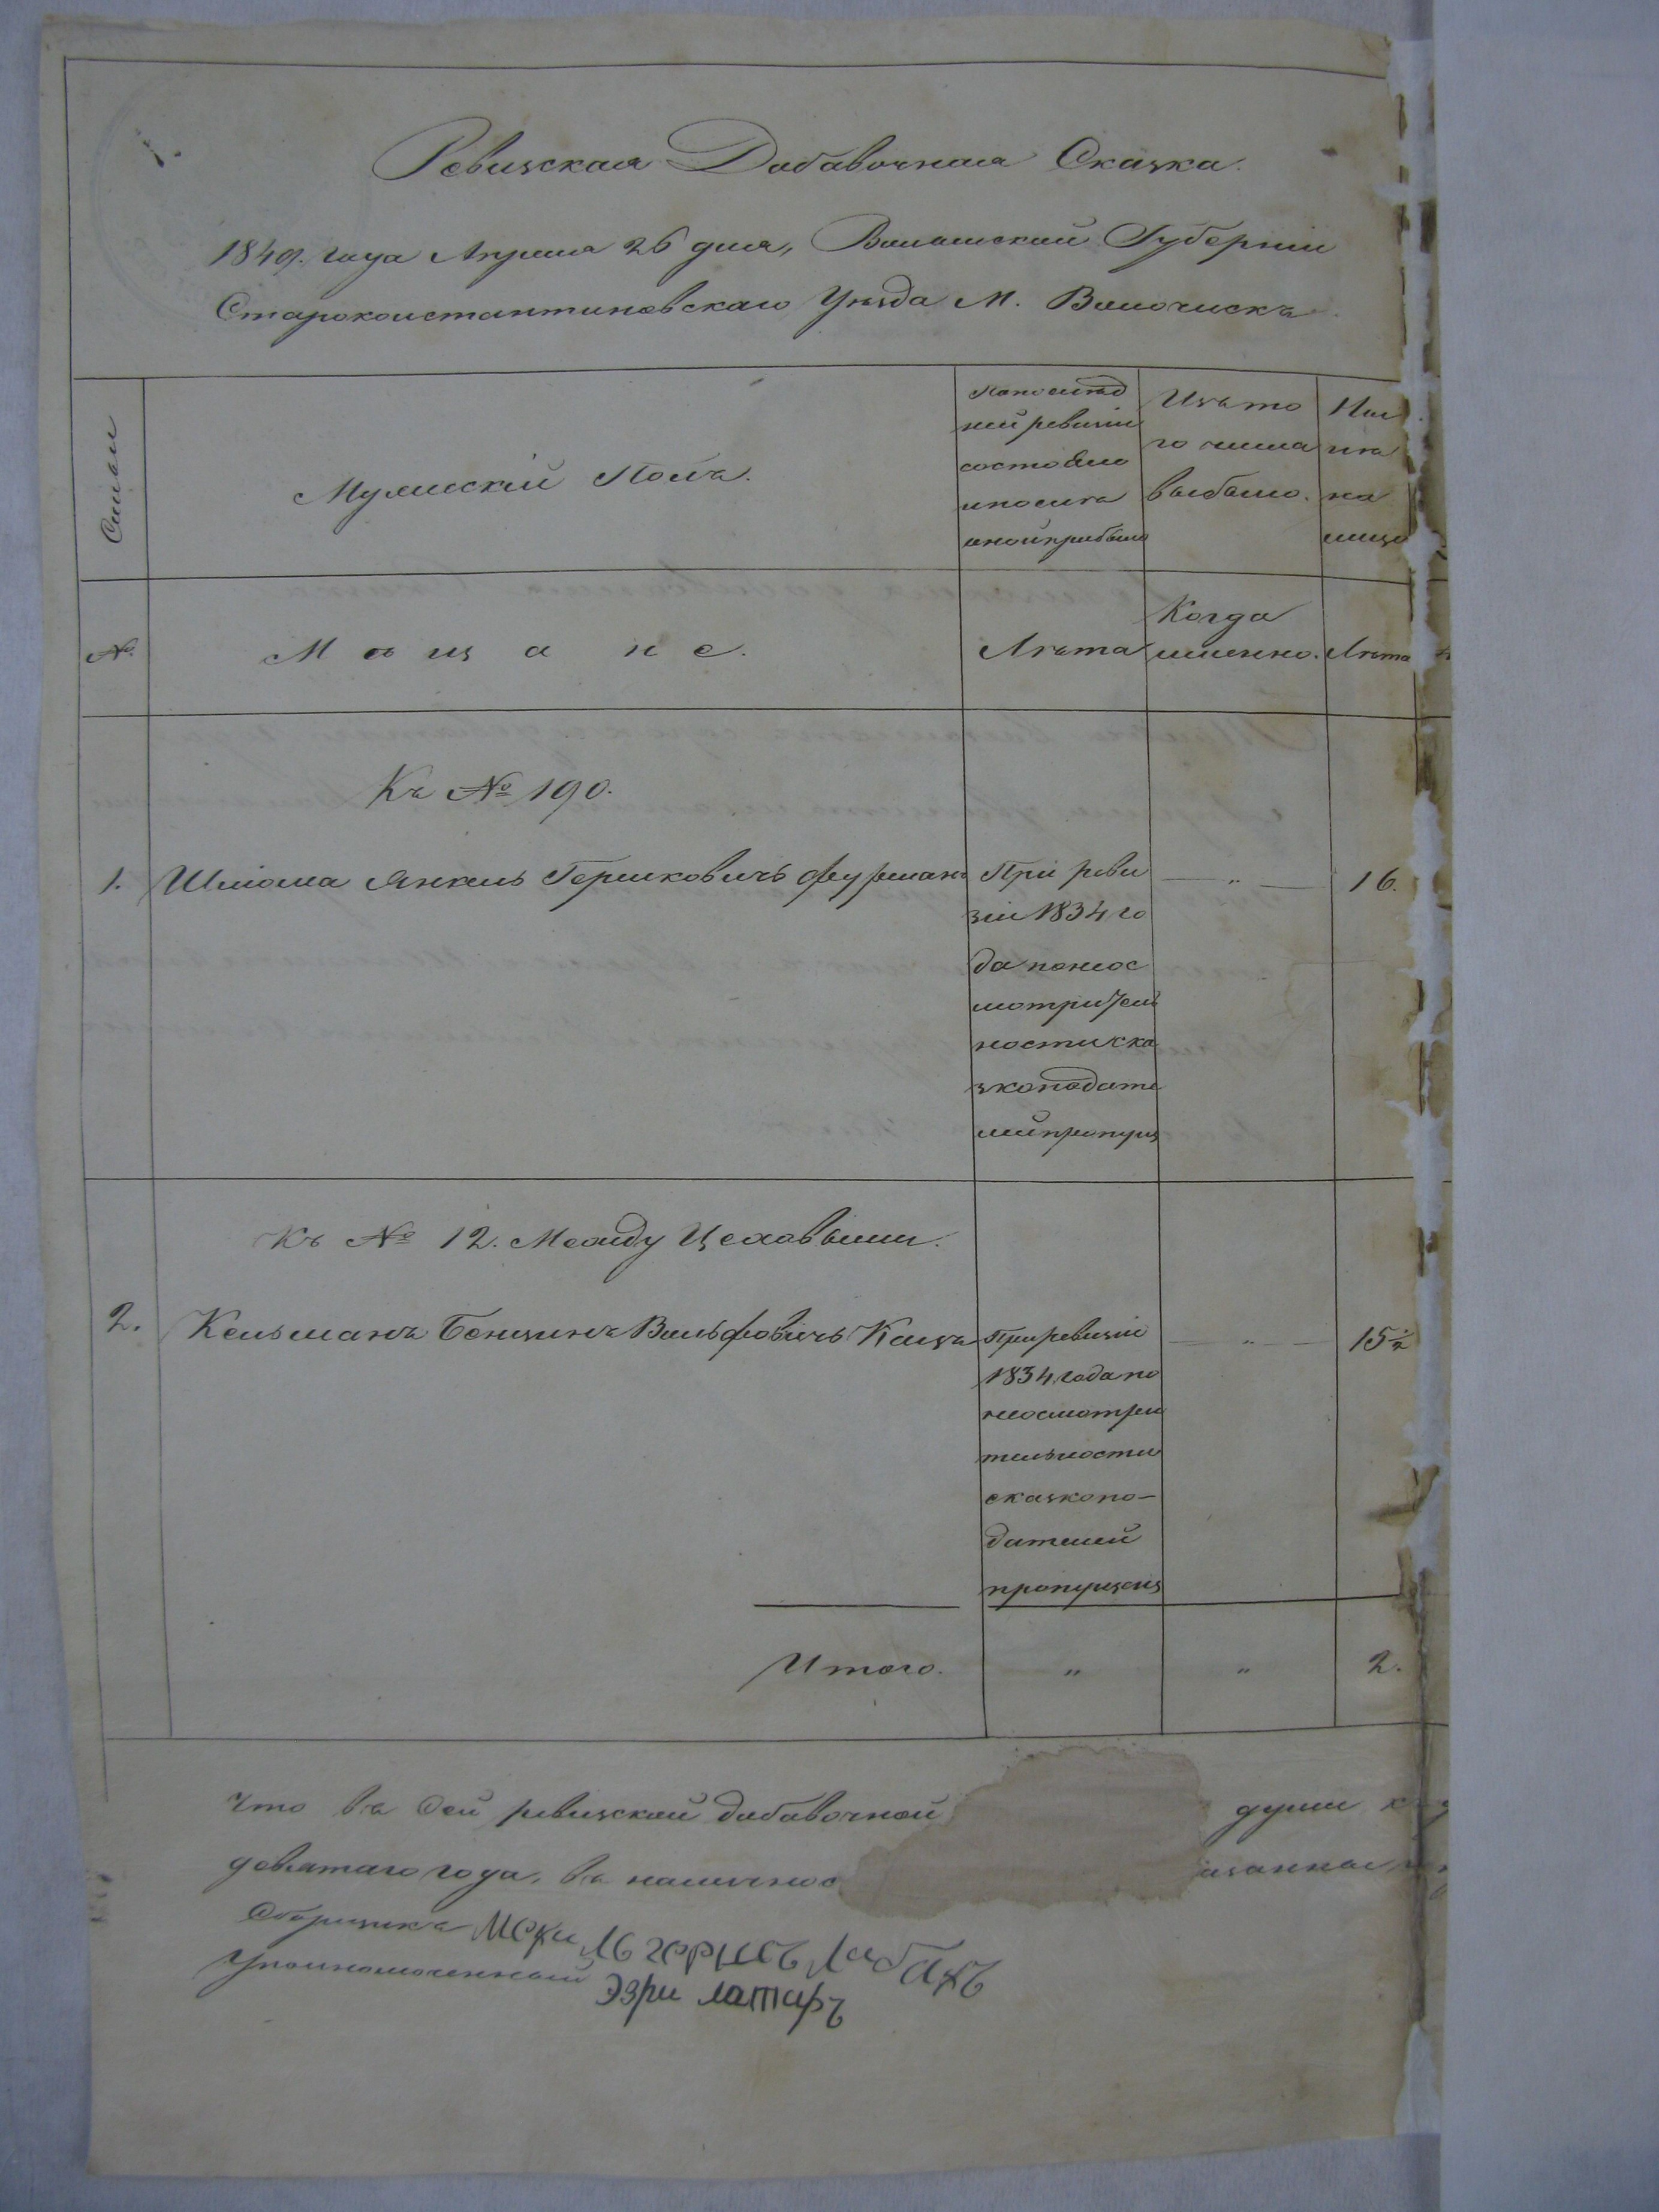 Ревизская Добавочная Сказка.
1849. года Апреля 26 дня, Волынской Губерніи
Староконстантиновскаго Уѣзда М. Волочискъ.
Семьи
Мужескій Полъ.
По послѣд
ней ревизіи
состояло
и послѣ
оной прибыло
Изъ то
го числа
выбыло.
Нын
ѣ
на
лицо
№
Мѣщане.
Лѣта
Когда
именно.
Лѣта
Къ № 190.
1. Шліома Янкель Гершковичъ Фурманъ
При реви
зіи 1834 го
да по неос
мотритель
ности ска
зкоподате
лей пропущ
— „ —
16.
Къ № 12. Между Цеховыми.
2. Кельманъ Бенцинъ Вольфовичъ Кацъ
При ревизіи
1834 года по
неосмотри
тельности
сказкопо-
дателей
пропущен
— „ —
15½
Итого. „ „ 2.
что въ сей ревизской добавочной души
девятаго года, въ наличнос
Сборщикъ
Уполномоченный Эзри латаръ